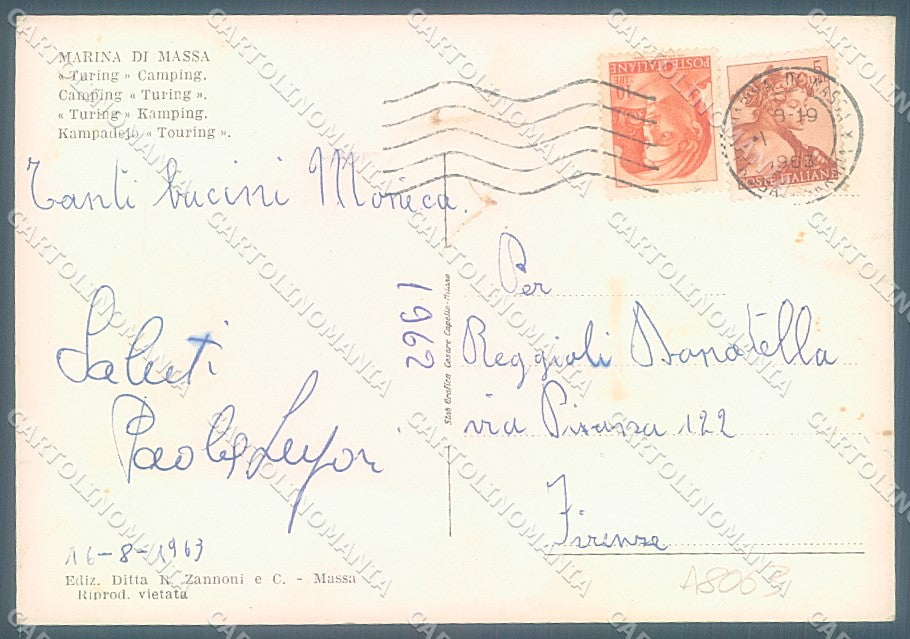 MARINA DI MASSA
« Turing » Camping.
Camping « Turing ».
« Turing » Kamping.
Kampadejo « Touring ».
Tanti bacini Monica.
Saluti
Paola
16-8-1963
Ediz. Ditta R. Zannoni e C. - Massa
Riprod. vietata
1962
Stab Grafico Cesare Capello-Milano
POSTE ITALIANE
10 LIRE
5
POSTE ITALIANE
MARINA DI MASSA
8-19
1963
Per
Reggioli Donatella
via Pisana 122
Firenze
A8063
CARTOLINOMANIA